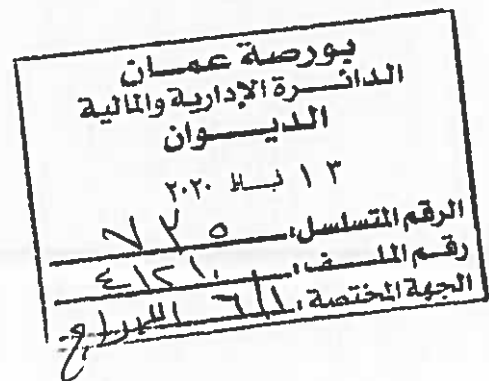 بورصة عمان
الدائرة الإدارية والمالية
الديوان
١٣ شباط ٢٠٢٠
الرقم المتسلسل: ٧٣٥
رقم الملف: ٤١٢١٠
الجهة المختصة: